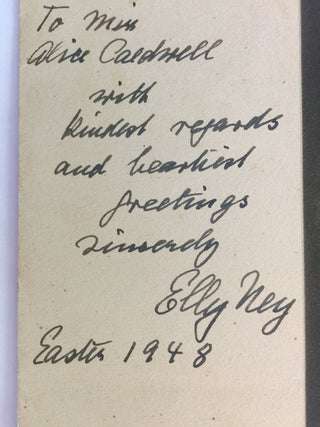 To Miss
Alice Caldwell
with
kindest regards
and heartiest
greetings
sincerely
Elly Ney
Easter 1948